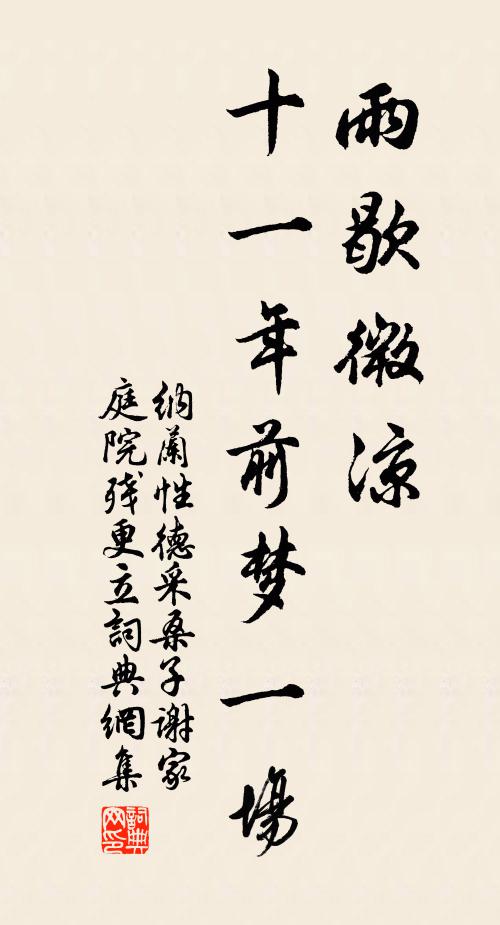 雨歇微涼
十一年前梦一場
納蘭性德采桑子谢家
庭院残更立詞典網集
詞典
网印